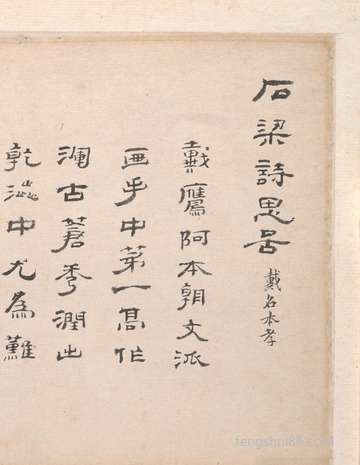 石梁詩思啚
戴名本孝
戴鷹阿本朝文派
画手中第一高作
古蒼秀潤出
乾澁中尤為難
fengshui86.com